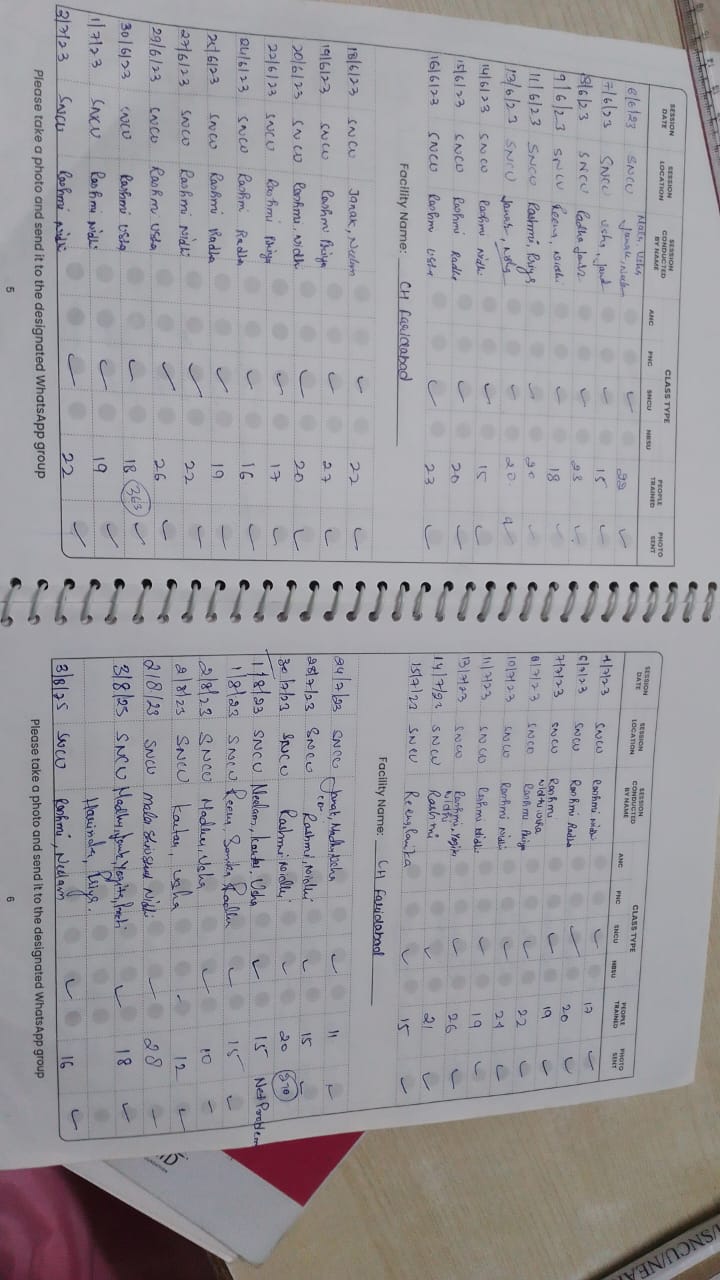 SESSION DATE SESSION LOCATION SESSION CONDUCTED BY NAME CLASS TYPE PEOPLE TRAINED PHOTO SENT
ANC PNC SNCU NBSU
6/6/23 SNCU Usha 22 ✓
7/6/23 SNCU Usha, Janak 15 ✓
8/6/23 SNCU Radha 23 ✓
9/6/23 SNCU Reena, Nidhi 18 ✓
11/6/23 SNCU Rashmi, Priya 20 ✓
13/6/23 SNCU 20
14/6/23 SNCU Rashmi Nidhi ✓ 15 ✓
15/6/23 SNCU Rashmi Radha ✓ 20 ✓
16/6/23 SNCU Rashmi Usha ✓ 23 ✓
Facility Name: CH Faridabad
18/6/23 SNCU Janak, Neelam ✓ 22 ✓
19/6/23 SNCU Rashmi Priya ✓ 27 ✓
20/6/23 SNCU Rashmi Nidhi ✓ 20 ✓
22/6/23 SNCU Rashmi Priya ✓ 17 ✓
24/6/23 SNCU Rashmi Radha ✓ 16 ✓
/6/23 SNCU Rashmi Radha ✓ 19 ✓
27/6/23 SNCU Rashmi Nidhi ✓ 22 ✓
29/6/23 SNCU Rashmi Usha ✓ 26 ✓
30/6/23 SNCU Rashmi Usha ✓ 18 363 ✓
1/7/23 SNCU Rashmi Nidhi ✓ 19 ✓
2/7/23 SNCU Rashmi Nidhi ✓ 22 ✓
Please take a photo and send it to the designated WhatsApp group
5
SESSION DATE SESSION LOCATION SESSION CONDUCTED BY NAME CLASS TYPE PEOPLE TRAINED PHOTO SENT
ANC PNC SNCU NBSU
/7/23 SNCU Rashmi Nidhi ✓ 17 ✓
/7/23 SNCU Rashmi Radha ✓ 20 ✓
7/7/23 SNCU Rashmi Nidhi Usha ✓ 19 ✓
8/7/23 SNCU Rashmi Priya ✓ 22 ✓
10/7/23 SNCU Rashmi Nidhi ✓ 24 ✓
11/7/23 SNCU Rashmi Nidhi ✓ 19 ✓
13/7/23 SNCU Rashmi, Nidhi ✓ 26 ✓
14/7/23 SNCU Rashmi ✓ 21 ✓
15/7/23 SNCU ✓ 15 ✓
Facility Name: CH Faridabad
24/7/23 SNCU Janak, Usha ✓ 11 ✓
28/7/23 SNCU Rashmi, Nidhi ✓ 15 ✓
30/7/23 SNCU Rashmi, Nidhi ✓ 20 270
1/8/23 SNCU Neelam, Usha ✓ 15 Net Problem
1/8/23 SNCU Reena, Radha ✓ 15 ✓
2/8/23 SNCU Madhu, Usha ✓ 10
2/8/23 SNCU Usha 12 ✓
2/8/23 SNCU Nidhi 28
3/8/23 SNCU Madhu, Janak, Yogita, Preeti ✓ 18 ✓
Priya.
3/8/25 SNCU Rashmi, Neelam ✓ 16 ✓
Please take a photo and send it to the designated WhatsApp group
6
/SNCU/NE